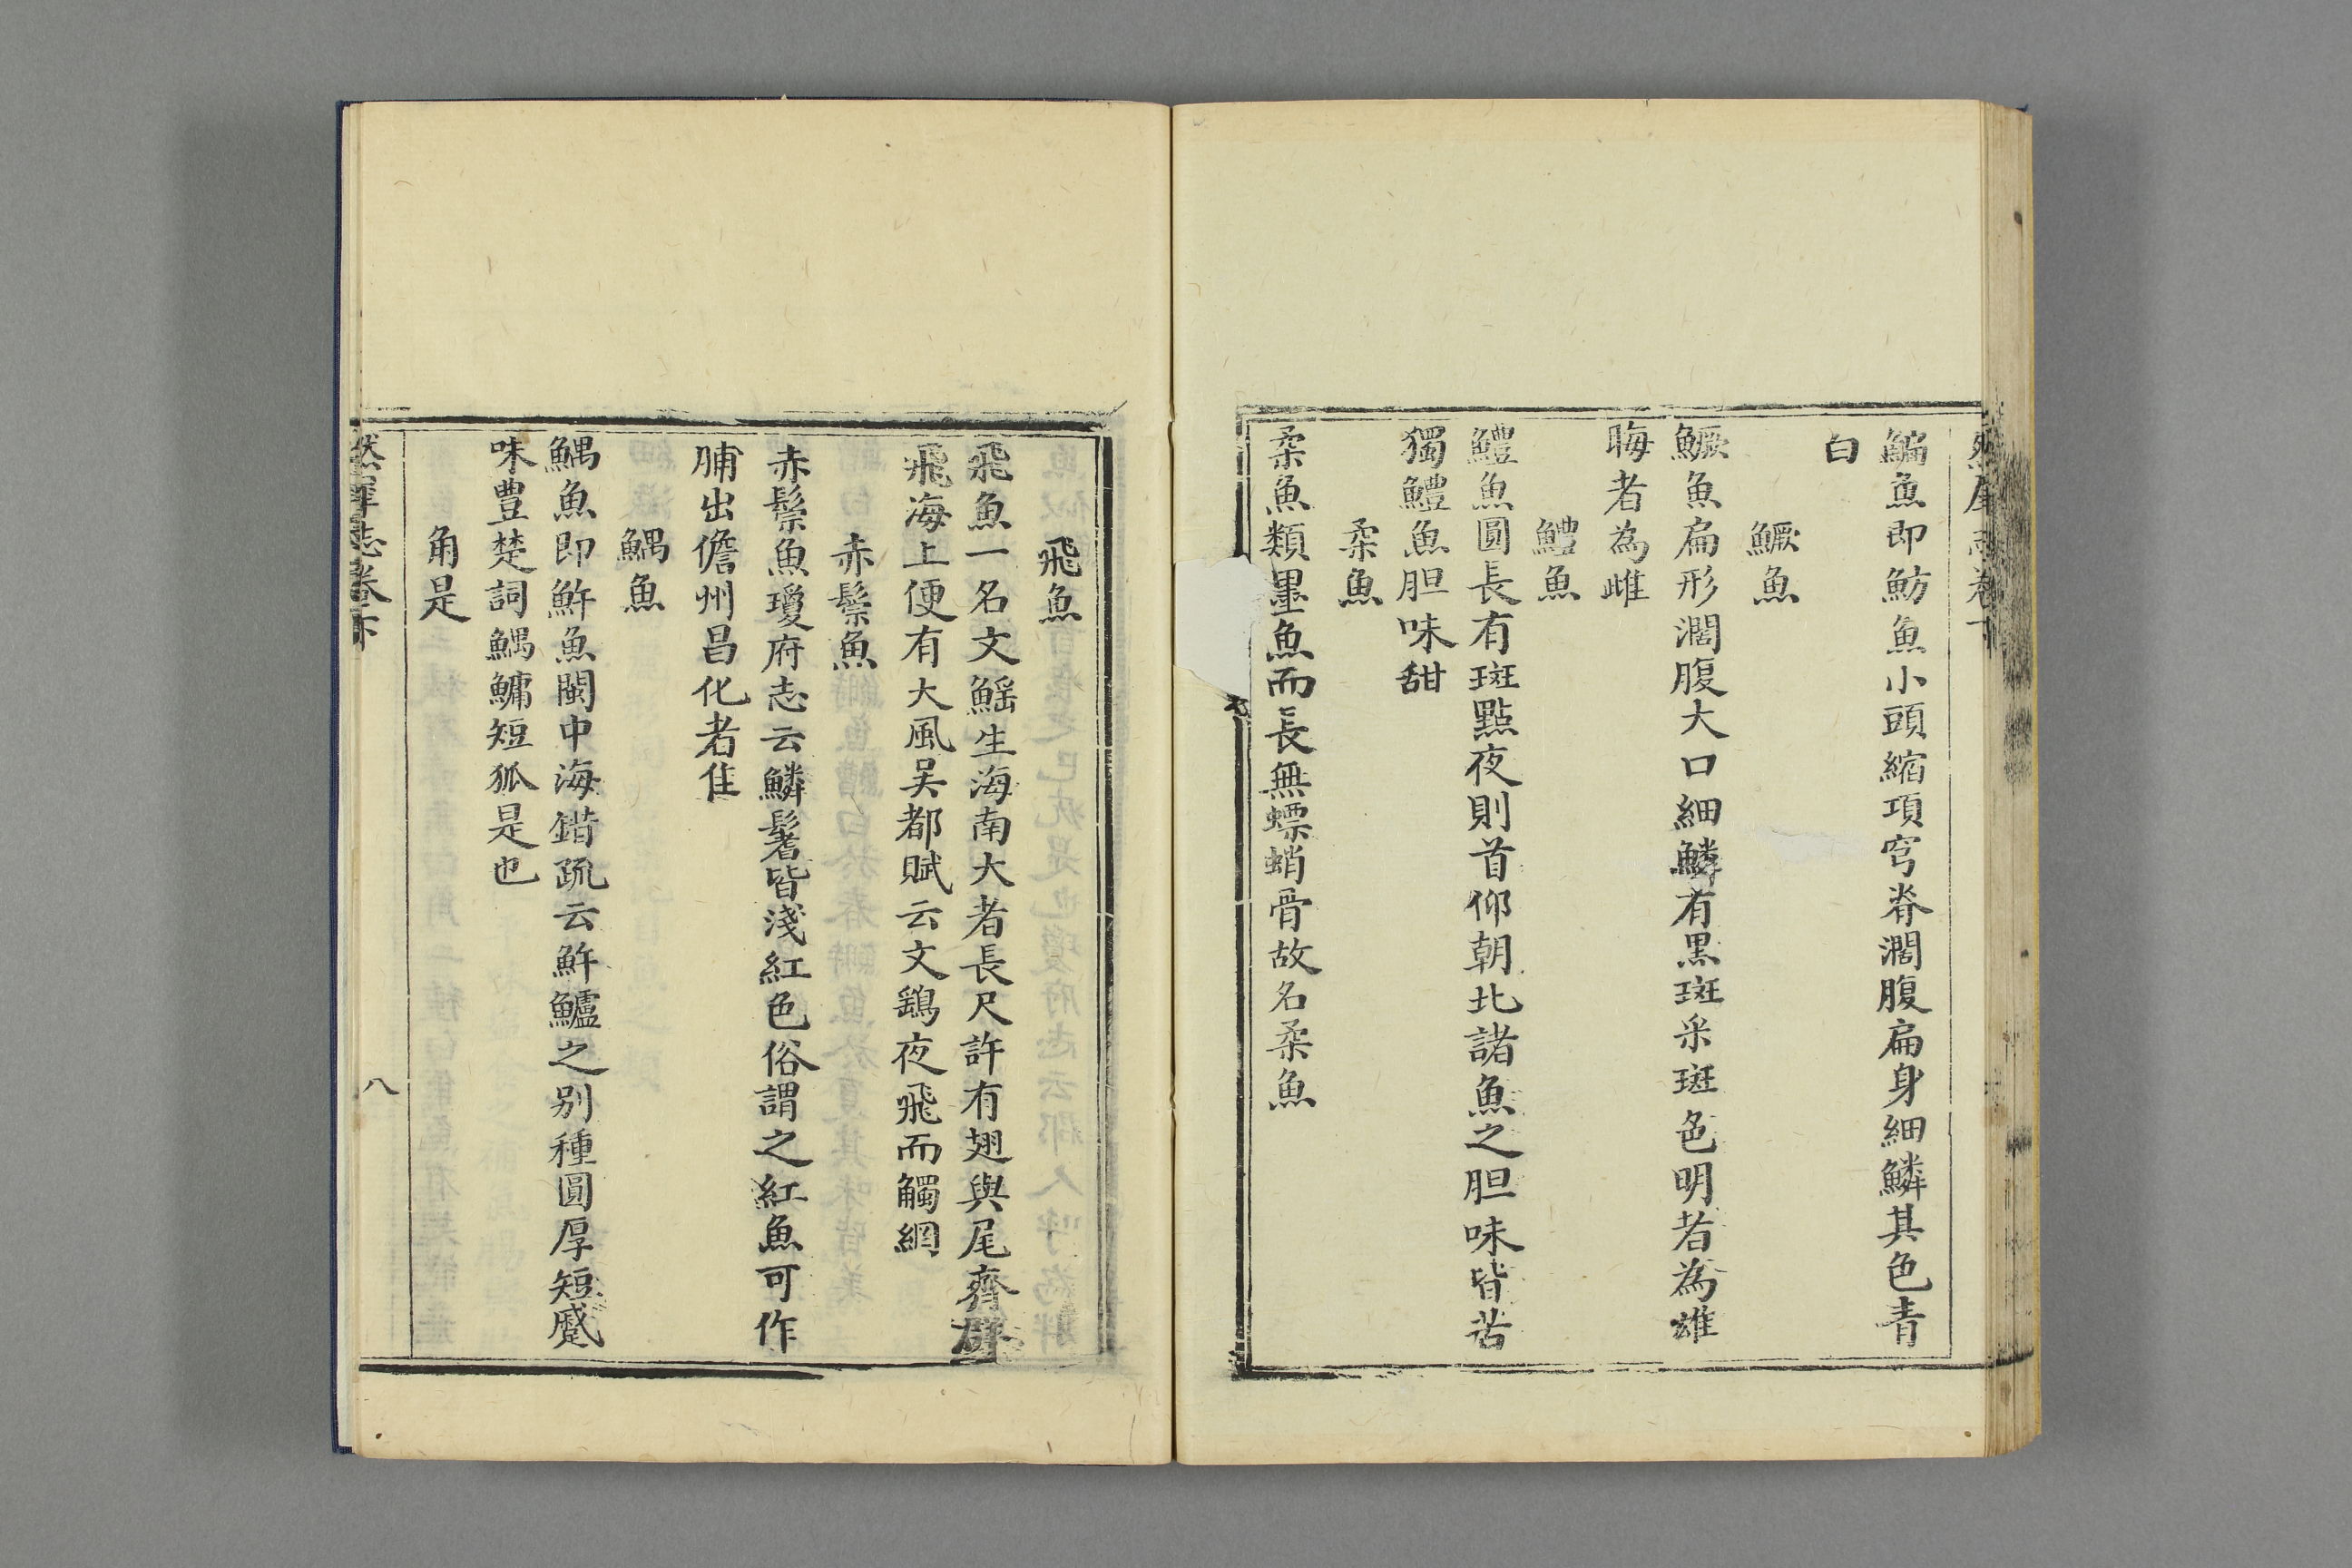 鯿魚即魴魚小頭縮項穹脊濶腹扁身細鱗其色青
白
鱖魚
鱖魚扁形濶腹大口細鱗有黒斑采斑色明者為雄
晦者為雌
鱧魚
鱧魚圓長有斑點夜則首仰朝北諸魚之胆味皆苦
獨鱧魚胆味甜
柔魚
柔魚類墨魚而長無螵蛸骨故名柔魚
飛魚
飛魚一名文鰩生海南大者長尺許有翅與尾齊群
飛海上便有大風吴都賦云文鷂夜飛而觸網
赤鬃魚
赤鬃魚瓊府志云鱗鬐皆淺紅色俗謂之紅魚可作
脯出儋州昌化者佳
鰅魚
鰅魚即魣魚閩中海錯疏云魣鱸之别種圓厚短蹙
味豊楚詞鰅鱅短狐是也
角是
然犀志卷下
八